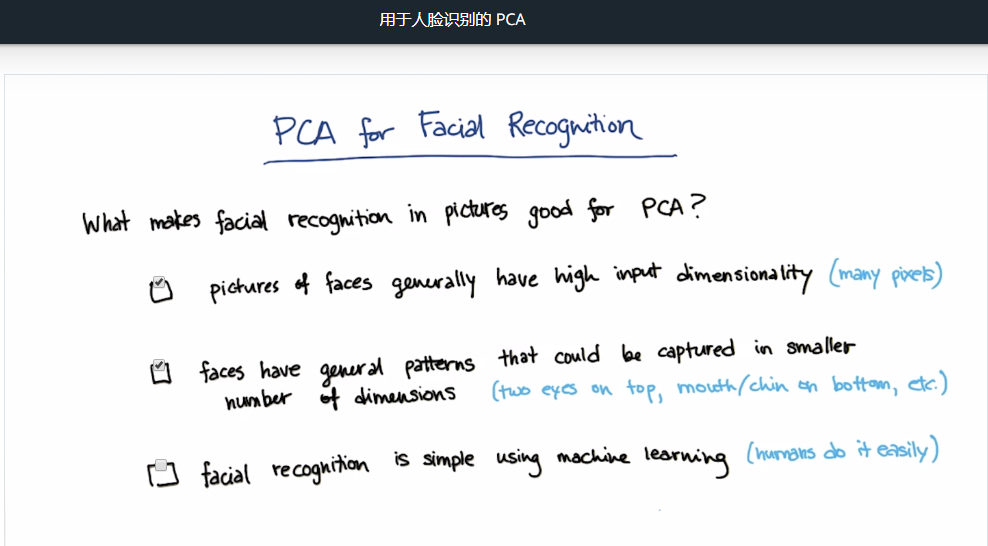 用于人脸识别的 PCA
PCA for Facial Recognition
What makes facial recognition in pictures good for PCA?
pictures of faces generally have high input dimensionality (many pixels)
faces have general patterns that could be captured in smaller
number of dimensions (two eyes on top, mouth/chin on bottom, etc.)
facial recognition is simple using machine learning (humans do it easily)